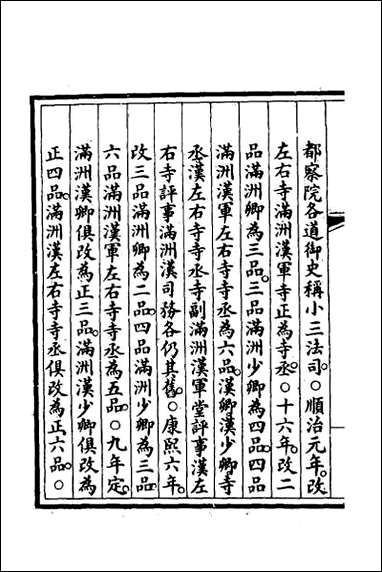 都察院各道御史稱小三法司。○順治元年。改
左右寺滿洲漢軍寺正為寺丞。○十六年。改二
品滿洲卿為三品。三品滿洲少卿為四品。四品
滿洲漢軍左右寺寺丞為六品。漢卿漢少卿寺
丞漢左右寺寺丞寺副滿洲漢軍堂評事漢左
右寺評事滿洲漢司務各仍其舊。○康熙六年。
改三品滿洲卿為二品。四品滿洲少卿為三品
六品滿洲漢軍左右寺寺丞為五品。○九年定。
滿洲漢卿俱改為正三品。滿洲漢少卿俱改為
正四品。滿洲漢左右寺寺丞俱改為正六品。○